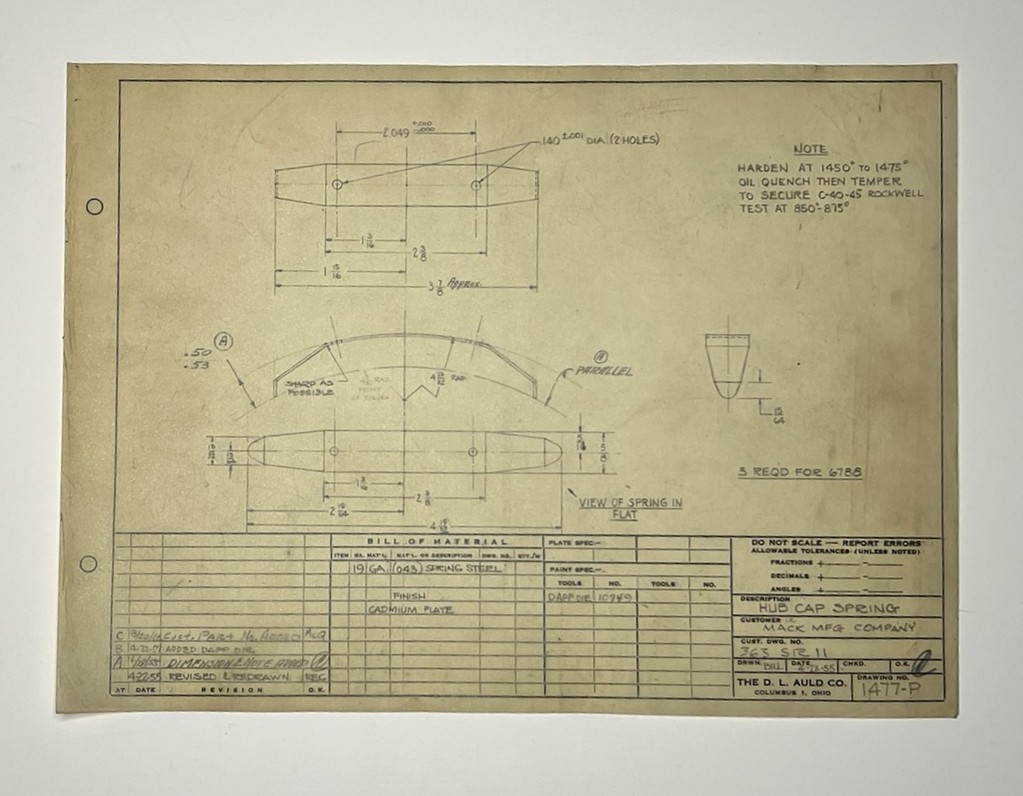 2.049 +.010 -.000
.140 ±.001 DIA. (2 HOLES)
NOTE
HARDEN AT 1450° TO 1475°
OIL QUENCH THEN TEMPER
TO SECURE C-40-45 ROCKWELL
TEST AT 850°-875°
1 3/16
2 3/8
1 15/16
3 7/8 APPROX.
A
.50
.53
SHARP AS
POSSIBLE
RAD.
A
PARALLEL
15/64
3 REQD FOR 6788
5/8
1 3/16
2 3/8
2 19/64
VIEW OF SPRING IN
FLAT
BILL OF MATERIAL
ITEM GA. MAT'L. MAT'L. OR DESCRIPTION DWG. NO. QTY./M
19 GA. (.043) SPRING STEEL
FINISH
CADMIUM PLATE
PLATE SPEC.—
PAINT SPEC.—
TOOLS NO. TOOLS NO.
DAPP DIE 10749
DO NOT SCALE — REPORT ERRORS
ALLOWABLE TOLERANCES (UNLESS NOTED)
FRACTIONS + −
DECIMALS + −
ANGLES + −
DESCRIPTION
HUB CAP SPRING
CUSTOMER
MACK MFG COMPANY
CUST. DWG. NO.
363 SR 11
DRWN. BILL DATE 4-22-55 CHKD. O.K.
THE D. L. AULD CO.
COLUMBUS 1, OHIO
DRAWING NO.
1477-P
C CUST. PART NO. ADDED
B ADDED DAPP DIE
A DIMENSION & NOTE ADDED
4-22-55 REVISED & REDRAWN REG
AT DATE REVISION O.K.